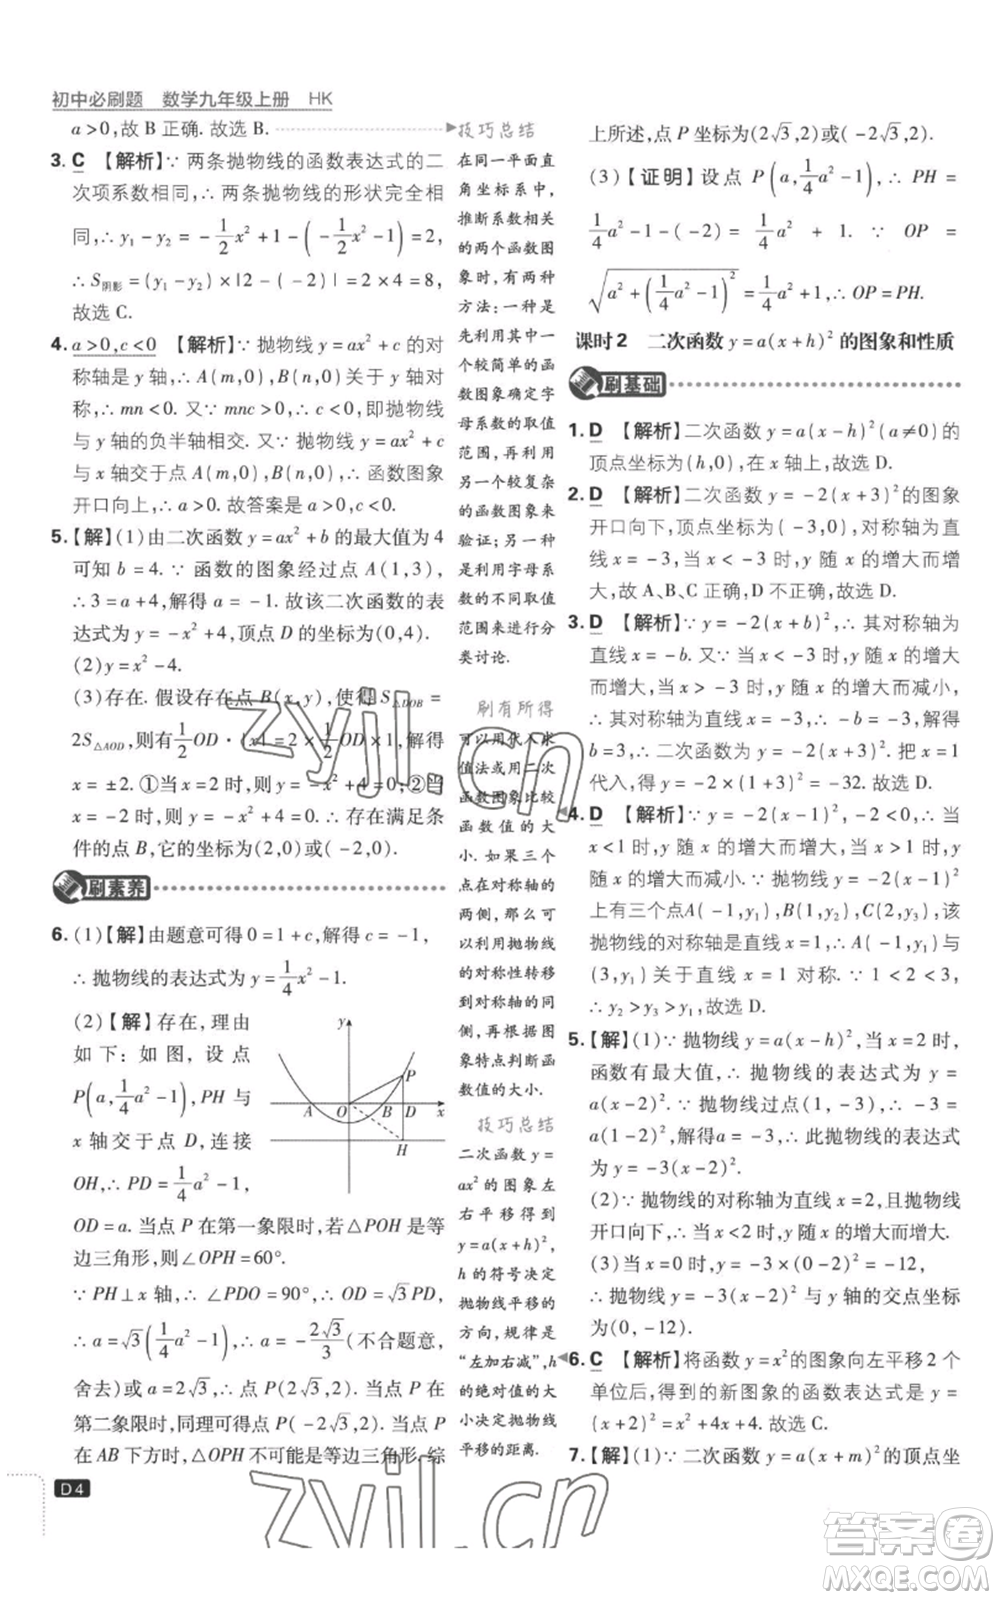 初中必刷题 数学九年级上册 HK
a>0,故 B 正确. 故选 B.
3. C 【解析】∵ 两条抛物线的函数表达式的二
次项系数相同,∴ 两条抛物线的形状完全相
同,∴ y₁-y₂ = -1/2x²+1-(-1/2x²-1)=2,
∴ S阴影=(y₁-y₂)×|2-(-2)|=2×4=8,
故选 C.
4. a>0,c<0 【解析】∵ 抛物线 y=ax²+c 的对
称轴是 y 轴,∴ A(m,0),B(n,0)关于 y 轴对
称,∴ mn<0. 又∵ mnc>0,∴ c<0,即抛物线
与 y 轴的负半轴相交. 又∵ 抛物线 y=ax²+c
与 x 轴交于点 A(m,0),B(n,0),∴ 函数图象
开口向上,∴ a>0. 故答案是 a>0,c<0.
5. 【解】(1)由二次函数 y=ax²+b 的最大值为 4
可知 b=4. ∵ 函数的图象经过点 A(1,3),
∴ 3=a+4,解得 a=-1. 故该二次函数的表
达式为 y=-x²+4,顶点 D 的坐标为(0,4).
(2)y=x²-4.
(3)存在. 假设存在点 B(x,y),使得 S△DOB=
2S△AOD,则有1/2OD·|x|=2×1/2OD×1,解得
x=±2. ①当 x=2 时,y=-x²+4=0;②当
x=-2 时,y=-x²+4=0. ∴ 存在满足条
件的点 B,它的坐标为(2,0)或(-2,0).
刷素养
6. (1)【解】由题意可得 0=1+c,解得 c=-1,
∴ 抛物线的表达式为 y=1/4x²-1.
(2)【解】存在,理由
如下:如图,设点
P(a,1/4a²-1),PH 与
x 轴交于点 D,连接
OH,∴ PD=1/4a²-1,
y
P
A O B D x
H
OD=a. 当点 P 在第一象限时,若△POH 是等
边三角形,则∠OPH=60°.
∵ PH⊥x 轴,∴ ∠PDO=90°,∴ OD=√3PD,
∴ a=√3(1/4a²-1),∴ a=-2√3/3(不合题意,
舍去)或 a=2√3,∴ 点 P(2√3,2). 当点 P 在
第二象限时,同理可得点 P(-2√3,2). 当点 P
在 AB 下方时,△OPH 不可能是等边三角形. 综
D4
技巧总结
在同一平面直
角坐标系中,
推断系数相关
的两个函数图
象时,有两种
方法:一种是
先利用其中一
个较简单的函
数图象确定字
母系数的取值
范围,再利用
另一个较复杂
的函数图象来
验证;另一种
是利用字母系
数的不同取值
范围来进行分
类讨论.
刷有所得
可以用代入求
值法或用二次
函数图象比较
函数值的大
小. 如果三个
点在对称轴的
两侧,那么可
以利用抛物线
的对称性转移
到对称轴的同
侧,再根据图
象特点判断函
数值的大小.
技巧总结
二次函数 y=
ax² 的图象左
右平移得到
y=a(x+h)²,
h 的符号决定
抛物线平移的
方向,规律是
“左加右减”,h
的绝对值的大
小决定抛物线
平移的距离.
上所述,点 P 坐标为(2√3,2)或(-2√3,2).
(3)【证明】设点 P(a,1/4a²-1),∴ PH=
1/4a²-1-(-2)=1/4a²+1. ∵ OP=
√(a²+(1/4a²-1)²)=1/4a²+1,∴ OP=PH.
课时2 二次函数 y=a(x+h)² 的图象和性质
刷基础
1. D 【解析】二次函数 y=a(x-h)²(a≠0)的
顶点坐标为(h,0),在 x 轴上,故选 D.
2. D 【解析】二次函数 y=-2(x+3)² 的图象
开口向下,顶点坐标为(-3,0),对称轴为直
线 x=-3,当 x<-3 时,y 随 x 的增大而增
大,故 A、B、C 正确,D 不正确,故选 D.
3. D 【解析】∵ y=-2(x+b)²,∴ 其对称轴为
直线 x=-b. 又∵ 当 x<-3 时,y 随 x 的增大
而增大,当 x>-3 时,y 随 x 的增大而减小,
∴ 其对称轴为直线 x=-3,∴ -b=-3,解得
b=3,∴ 二次函数为 y=-2(x+3)². 把 x=1
代入,得 y=-2×(1+3)²=-32. 故选 D.
4. D 【解析】∵ y=-2(x-1)²,-2<0,∴ 当
x<1 时,y 随 x 的增大而增大,当 x>1 时,y 随
x 的增大而减小. ∵ 抛物线 y=-2(x-1)²
上有三个点A(-1,y₁),B(1,y₂),C(2,y₃),该
抛物线的对称轴是直线 x=1,∴ A(-1,y₁)与
(3,y₁)关于直线 x=1 对称. ∵ 1<2<3,
∴ y₂>y₃>y₁,故选 D.
5. 【解】(1)∵ 抛物线 y=a(x-h)²,当 x=2 时,
函数有最大值,∴ 抛物线的表达式为 y=
a(x-2)². ∵ 抛物线过点(1,-3),∴ -3=
a(1-2)²,解得 a=-3,∴ 此抛物线的表达式
为 y=-3(x-2)².
(2)∵ 抛物线的对称轴为直线 x=2,且抛物线
开口向下,∴ 当 x<2 时,y 随 x 的增大而增大.
(3)当 x=0 时,y=-3×(0-2)²=-12,
∴ 抛物线 y=-3(x-2)² 与 y轴的交点坐标
为(0,-12).
6. C 【解析】将函数 y=x²的图象向左平移 2 个
单位后,得到的新图象的函数表达式是 y=
(x+2)²=x²+4x+4. 故选 C.
7. 【解】(1)∵ 二次函数 y=a(x+m)² 的顶点坐
zyjl.cn
zyjl.cn
答案圈
MXQE.COM